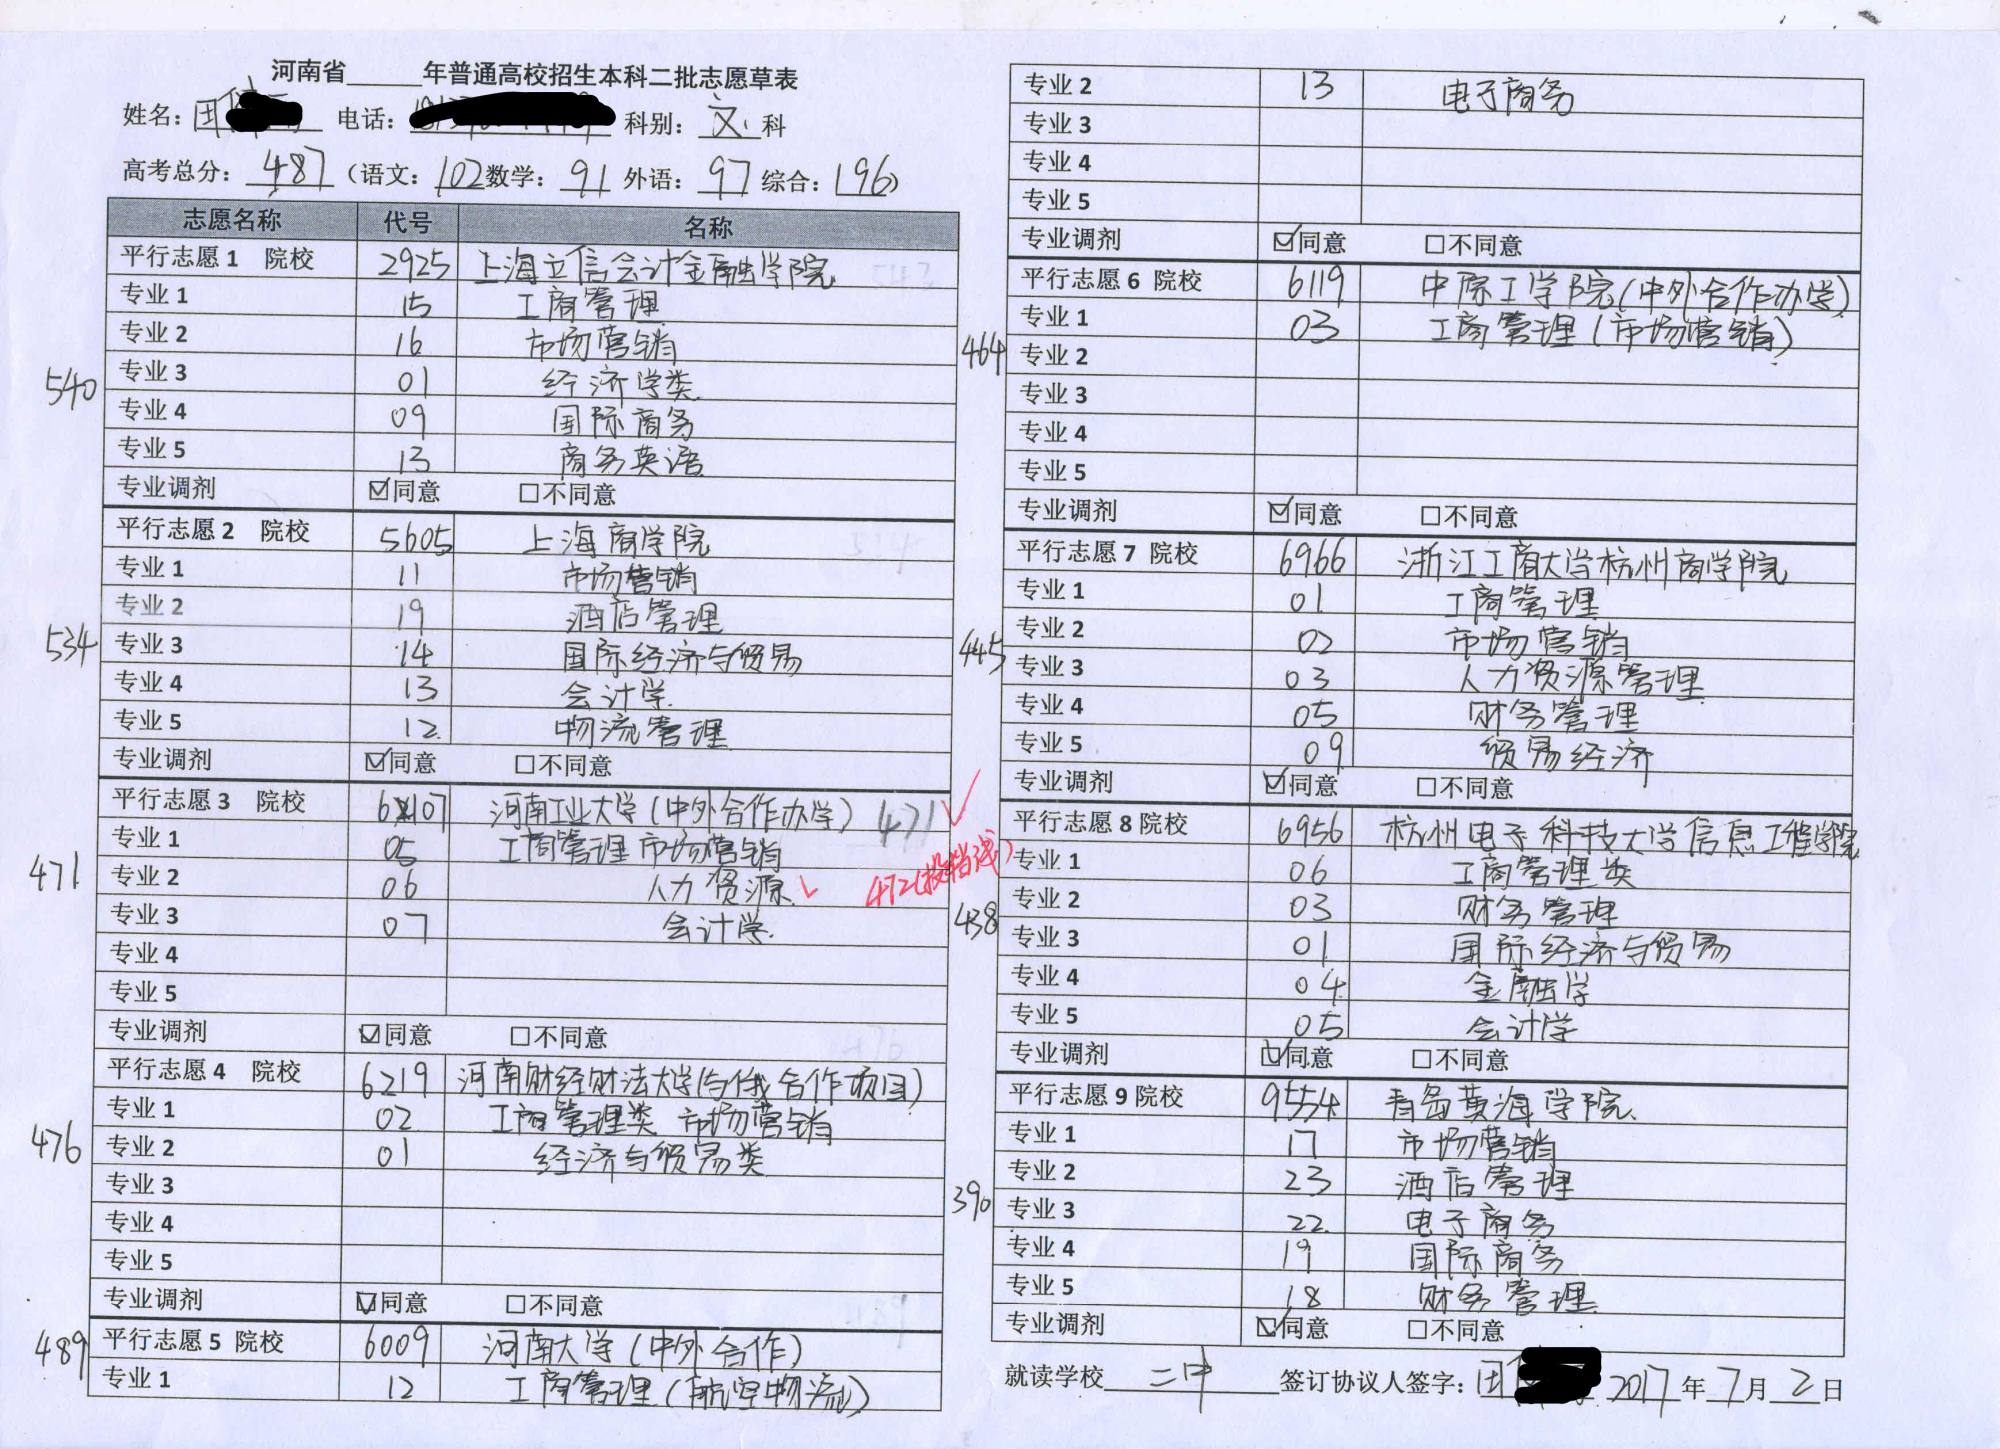 河南省______年普通高校招生本科二批志愿草表
姓名: 田 电话: 科别: 文 科
高考总分: 487 (语文: 102 数学: 91 外语: 97 综合: 196)
志愿名称 代号 名称
平行志愿 1 院校 2925 上海立信会计金融学院
专业 1 15 工商管理
专业 2 16 市场营销
540
专业 3 01 经济学类
专业 4 09 国际商务
专业 5 13 商务英语
专业调剂 ☑同意 □不同意
平行志愿 2 院校 5605 上海商学院
专业 1 11 市场营销
专业 2 19 酒店管理
534
专业 3 14 国际经济与贸易
专业 4 13 会计学
专业 5 12 物流管理
专业调剂 ☑同意 □不同意
平行志愿 3 院校 6107 河南工业大学(中外合作办学) 471 ✓
专业 1 05 工商管理 市场营销
471
472(投档线)
专业 2 06 人力资源 ✓
专业 3 07 会计学
专业 4
专业 5
专业调剂 ☑同意 □不同意
平行志愿 4 院校 6219 河南财经财法大学(与俄合作项目)
专业 1 02 工商管理类 市场营销
476
专业 2 01 经济与贸易类
专业 3
专业 4
专业 5
专业调剂 ☑同意 □不同意
489
平行志愿 5 院校 6009 河南大学(中外合作)
专业 1 12 工商管理(航空物流)
专业 2 13 电子商务
专业 3
专业 4
专业 5
专业调剂 ☑同意 □不同意
平行志愿 6 院校 6119 中原工学院(中外合作办学)
专业 1 03 工商管理(市场营销)
464
专业 2
专业 3
专业 4
专业 5
专业调剂 ☑同意 □不同意
平行志愿 7 院校 6966 浙江工商大学杭州商学院
专业 1 01 工商管理
专业 2 02 市场营销
445
专业 3 03 人力资源管理
专业 4 05 财务管理
专业 5 09 贸易经济
专业调剂 ☑同意 □不同意
平行志愿 8 院校 6956 杭州电子科技大学信息工程学院
专业 1 06 工商管理类
专业 2 03 财务管理
438
专业 3 01 国际经济与贸易
专业 4 04 金融学
专业 5 05 会计学
专业调剂 ☑同意 □不同意
平行志愿 9 院校 9554 青岛黄海学院
专业 1 17 市场营销
专业 2 23 酒店管理
390
专业 3 22 电子商务
专业 4 19 国际商务
专业 5 18 财务管理
专业调剂 ☑同意 □不同意
就读学校 二中 签订协议人签字: 田 2017 年 7 月 2 日